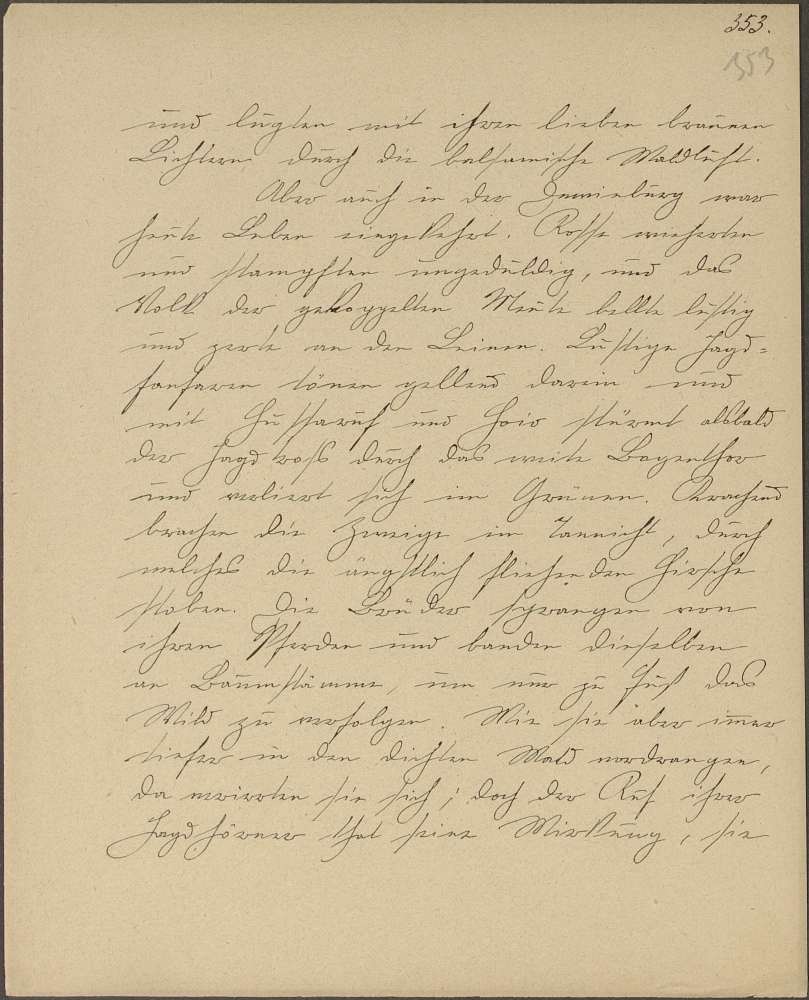 353.
353
und lugten mit ihren lieben braunen
Lichtern durch die balsamische Waldluft.
Aber auch in der war
heute Leben eingekehrt. Rosse wieherten
und stampften ungeduldig, und das
Volk der gekoppelten Meute bellte lustig
und zerrte an den Leinen. Lustige Jagd=
fanfaren tönen gellend darein und
mit Hussaruf und Hoio stürmt alsbald
der Jagdtroß durch das weite Bogenthor
und verliert sich im Grünen. Krachend
brachen die Zweige im Tannicht, durch
welches die ängstlich fliehenden Hirsche
stoben. Die Brüder sprangen von
ihren Pferden und banden dieselben
an Baumstämme, um nur zu Fuß das
Wild zu verfolgen. Wie sie aber immer
tiefer in den dichten Wald vordrangen,
da verirrten sie sich; doch der Ruf ihrer
Jagdhörner that seine Wirkung, sie